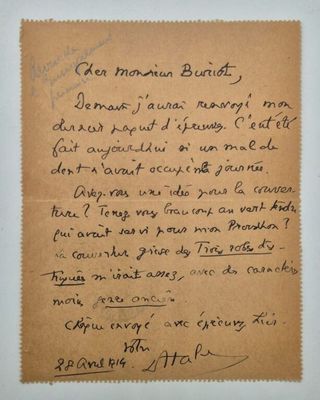 Cher Monsieur Buriot,
Demain j'aurai renvoyé mon
dernier paquet d'épreuves. C'eut été
fait aujourd'hui si un mal de
dent n'avait occupé la journée.
Avez-vous une idée pour la couver-
ture? Tenez vous beaucoup au vert tendre
qui avait servi pour mon Proudhon?
La couverture grise des
m'irait assez, avec des caractères
moins genre ancien.
envoyé avec épreuves
Votre
28 Avril 1914 D Halévy